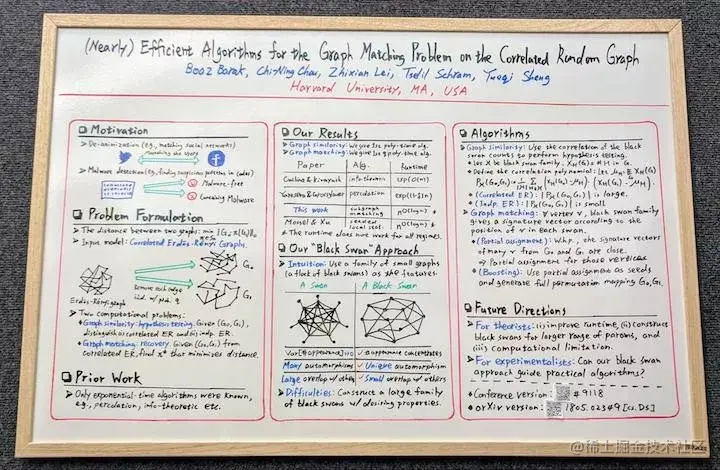 (Nearly) Efficient Algorithms for the Graph Matching Problem on the Correlated Random Graph
Boaz Barak, Chi-Ning Chou, Zhixian Lei, Tselil Schramm, Yueqi Sheng
Harvard University, MA, USA
Motivation
De-anonymization (e.g., matching social networks)
Malware detection (e.g., finding suspicious patterns in codes)
Malware-free
Containing Malware
Problem Formulation
The distance between two graphs: min ||G₀ - π(G₁)||₀
Input model: Correlated Erdős-Rényi Graphs.
G₀
remove each edge
i.i.d. w/ prob.
G₁
Erdős-Rényi graph
Two computational problems:
Graph similarity: hypothesis testing. Given (G₀, G₁),
distinguish (i) correlated ER and (ii) indp. ER.
Graph matching: recovery. Given (G₀, G₁) from
correlated ER, find π* that minimizes distance.
Prior Work
Only exponential-time algorithms were known,
e.g., percolation, info-theoretic etc.
Our Results
Graph similarity: We give 1st poly-time alg.
Graph matching: We give 1st poly-time alg.
Paper Alg. Runtime
Cullina & Kiyavash info-theoretic exp(O(n))
Yartseva & Grossglauser percolation
This work subgraph matching n^O(log n)
Mossel & Xu seeded local stat.
The runtime does not work for all regimes.
Our "Black Swan" Approach
Intuition: Use a family of small graphs
(a flock of black swans) as the features.
A Swan A Black Swan
appearance concentrates
Many automorphism Unique automorphism
Large overlap w/ others Small overlap w/ others
Difficulties: Construct a large family
of black swans w/ desiring properties.
Algorithms
Graph similarity: Use the correlation of the black
swan counts to perform hypothesis testing.
Let X be black swan family.
Define the correlation polynomial:
(Correlated ER): is large.
(Indp. ER): is small.
Graph matching: ∀ vertex v, black swan family
gives a signature vector according to the
position of v in each swan.
(Partial assignment): W.h.p., the signature vectors
of many v from G₀ and G₁ are close.
⇒ Partial assignment for those vertices
(Boosting): Use partial assignment as seeds
and generate full permutation mapping G₀, G₁.
Future Directions
For theorists: (i) improve runtime, (ii) construct
black swans for larger range of params, and
(iii) computational limitation.
For experimentalists: Can our black swan
approach guide practical algorithms?
Conference version: #9118
arXiv version: 1805.02349 [cs.DS]
@稀土掘金技术社区